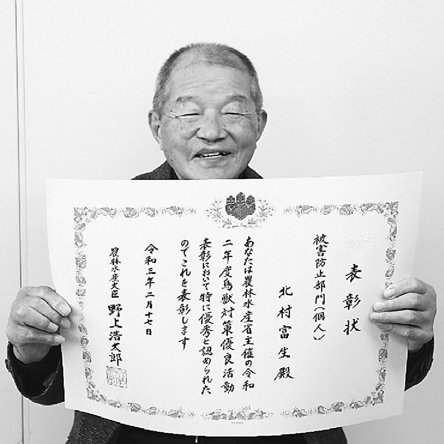 表彰状
被害防止部門(個人)
北村富生殿
あなたは農林水産省主催の令和
二年度鳥獣対策優良活動
表彰において特に優秀と認められた
のでこれを表彰します
令和三年二月十七日
農林水産大臣 野上浩太郎